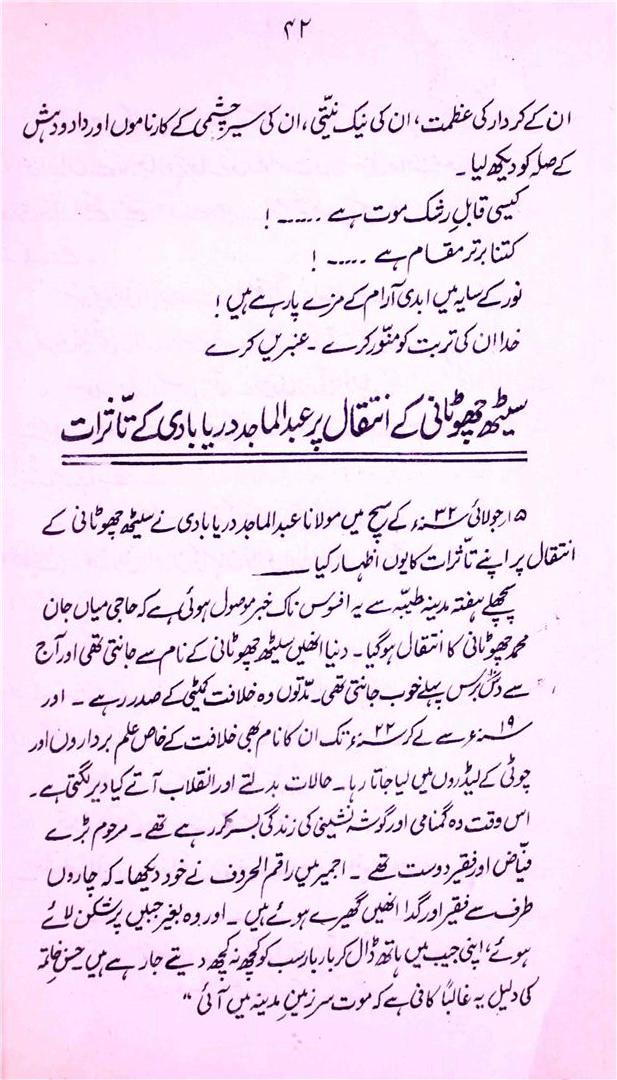 ۴۲
ان کے کردار کی عظمت، ان کی نیک نیتّی، ان کی سیر چشمی کے کارناموں اور داد و دہش
کے صلہ کو دیکھ لیا۔
کیسی قابلِ رشک موت ہے ۔۔۔۔۔ !
کتنا برتر مقام ہے ۔۔۔۔۔ !
نور کے سایہ میں ابدی آرام کے مزے پا رہے ہیں !
خدا ان کی تربت کو منوّر کرے ۔ عنبریں کرے
سیٹھ چھوٹانی کے انتقال پر عبدالماجد دریابادی کے تاّثرات
۱۵ جولائی ۳۲ء کے سچ میں مولانا عبدالماجد دریابادی نے سیٹھ چھوٹانی کے
انتقال پر اپنے تاّثرات کا یوں اظہار کیا
پچھلے ہفتہ مدینہ طیبّہ سے یہ افسوس ناک خبر موصول ہوئی ہے کہ حاجی میاں جان
محمد چھوٹانی کا انتقال ہوگیا۔ دنیا انھیں سیٹھ چھوٹانی کے نام سے جانتی تھی اور آج
سے دس برس پہلے خوب جانتی تھی۔ مدّتوں وہ خلافت کمیٹی کے صدر رہے ۔ اور
۱۹ء سے لے کر ۲۲ء تک ان کا نام بھی خلافت کے خاص علم برداروں اور
چوٹی کے لیڈروں میں لیا جاتا رہا۔ حالات بدلتے اور انقلاب آتے کیا دیر لگتی ہے۔
اس وقت وہ گمنامی اور گوشہ نشینی کی زندگی بسر کر رہے تھے ۔ مرحوم بڑے
فیّاض اور فقیر دوست تھے ۔ اجمیر میں راقم الحروف نے خود دیکھا۔ کہ چاروں
طرف سے فقیر اور گدا انھیں گھیرے ہوئے ہیں ۔ اور وہ بغیر جبیں پر شکن لائے
ہوئے، اپنی جیب میں ہاتھ ڈال کر بار بار سب کو کچھ نہ کچھ دیتے جا رہے ہیں حسنِ خاتمہ
کی دلیل یہ غالباً کافی ہے کہ موت سرزمینِ مدینہ میں آئی "